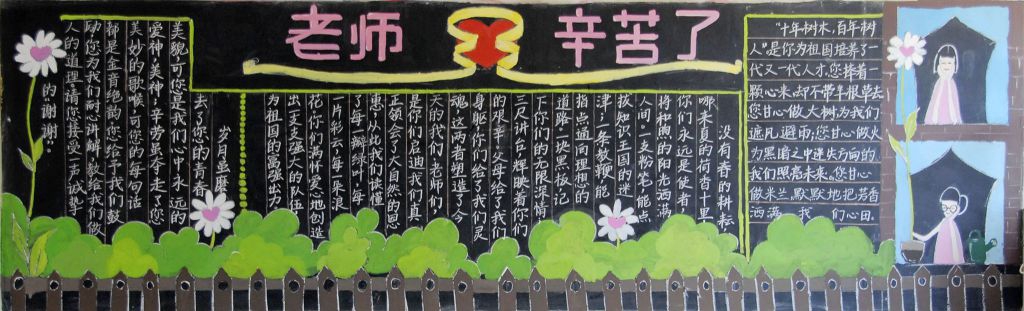 老师 辛苦了
“十年树木,百年树
人”是你为祖国培养了一
代又一代人才,您捧着一
颗心来,却不带半根草去
您甘心做大树为我们
遮风避雨,您甘心做火
为黑暗之中迷失方向的
我们照亮未来,您甘心
做米兰,默默地把芳香
洒满我们心田。
没有春的耕耘
哪来夏的荷香十里
你们永远是使者
将和煦的阳光洒满
人间。一支粉笔,能点
拔知识王国的迷
津;一条教鞭,能
指点通向理想的
道路,一块黑板,记
下你们的无限深情
三尺讲台,辉映着你们
的艰辛,父母给了我们
身躯,你们给了我们灵
魂,这两者塑造了今
天的我们,老师们,
是你们启迪我们真
正领会了大自然的恩
惠,从此我们读懂
了每一瓣绿叶,每
一片彩云,每一朵浪
花,你们满怀爱地创造
出一支支强大的队伍
为祖国的富强出力
岁月虽磨
去了您的青春
美貌,可您是我们心中永远的
爱神,美神,辛劳虽夺走了您
美妙的歌喉,可您的每句话
都是金音绝韵,您给予了我们鼓
励,您为我们耐心讲解,教给我们做
人的道理,请您接受一声诚挚
的谢谢..